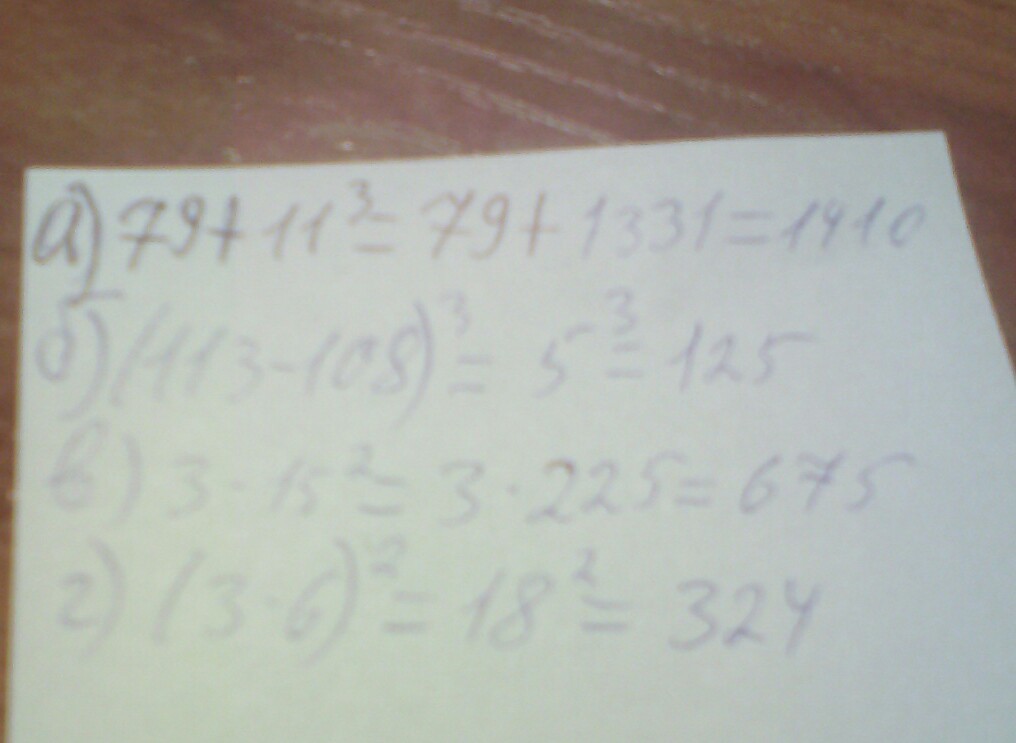 а) 79+11³=79+1331=1410
б) (113-108)³=5³=125
в) 3·15²=3·225=675
г) (3·6)²=18²=324